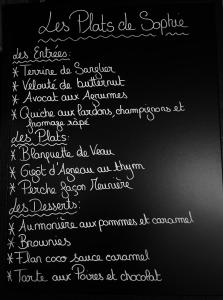 Les Plats de Sophie
Les Entrées:
* Terrine de Sanglier
* Velouté de butternut
* Avocat aux Agrumes
* Quiche aux lardons, champignons et
fromage râpé
Les Plats:
* Blanquette de Veau
* Gigôt d'Agneau au thym
* Perche façon Meunière
Les Desserts:
* Aumonière aux pommes et caramel
* Brownies
* Flan coco sauce caramel
* Tarte aux Poires et chocolat